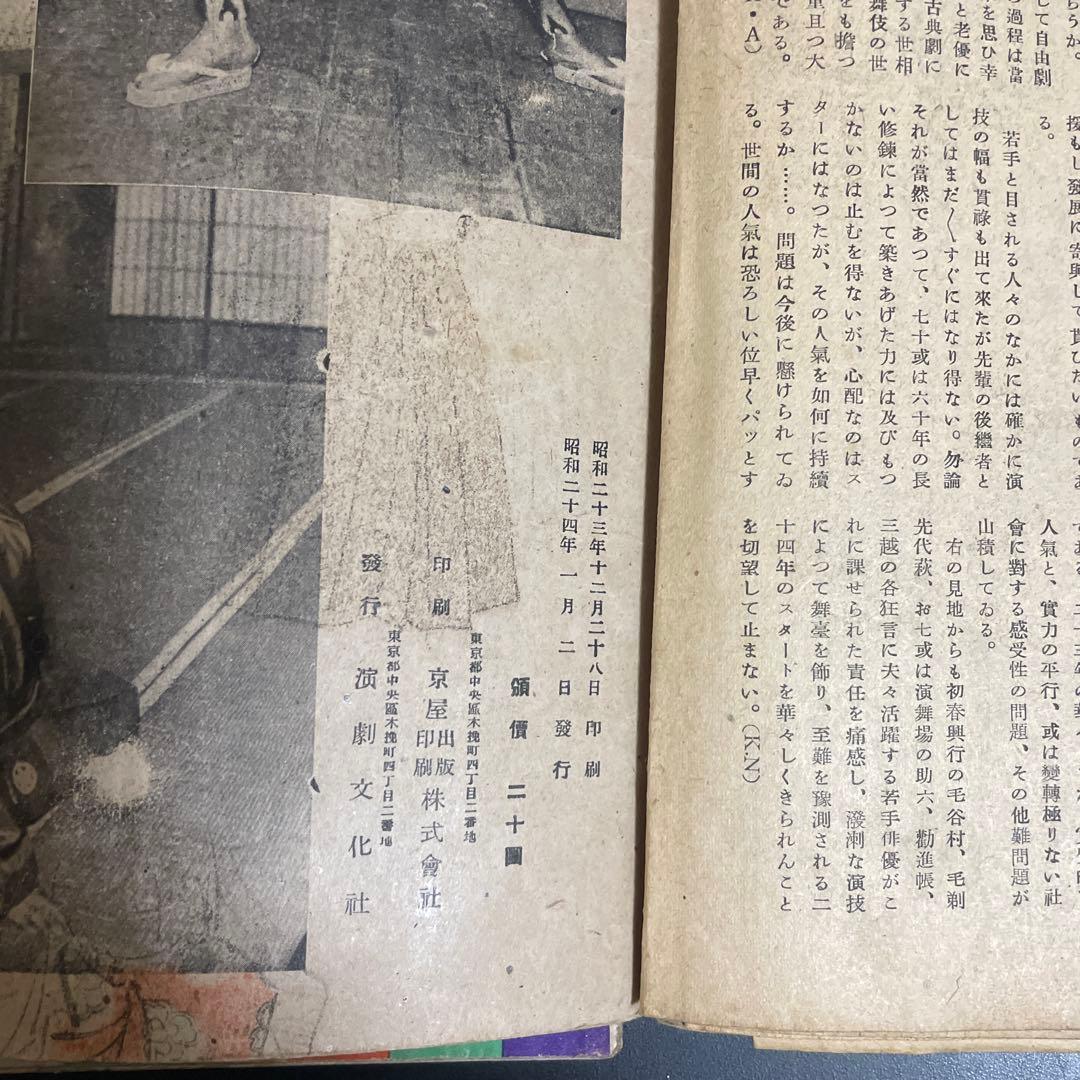 らうか。
して自由劇
過程は當
を思ひ幸
と老優に
古典劇に
する世相
舞伎の世
をも擔つ
重且つ大
である。
・A)
援もし發展に寄與して貰ひたいものであ
る。
若手と目される人々のなかには確かに演
技の幅も貫祿も出て來たが先輩の後繼者と
してはまだ〱すぐにはなり得ない。勿論
それが當然であつて、七十或は六十年の長
い修鍊によつて築きあげた力には及びもつ
かないのは止むを得ないが、心配なのはス
ターにはなつたが、その人氣を如何に持續
するか……。問題は今後に懸けられてゐ
る。世間の人氣は恐ろしい位早くパッとす
人氣と、實力の平行、或は變轉極りない社
會に對する感受性の問題、その他難問題が
山積してゐる。
右の見地からも初春興行の毛谷村、毛剃
先代萩、お七或は演舞場の助六、勸進帳、
三越の各狂言に夫々活躍する若手俳優がこ
れに課せられた責任を痛感し、潑溂な演技
によつて舞臺を飾り、至難を豫測される二
十四年のスタードを華々しくきられんこと
を切望して止まない。(KN)
昭和二十三年十二月二十八日 印刷
昭和二十四年 一月 二日 發行
頒價 二十圓
東京都中央區木挽町四丁目二番地
印刷 京屋出版印刷株式會社
東京都中央區木挽町四丁目二番地
發行 演劇文化社